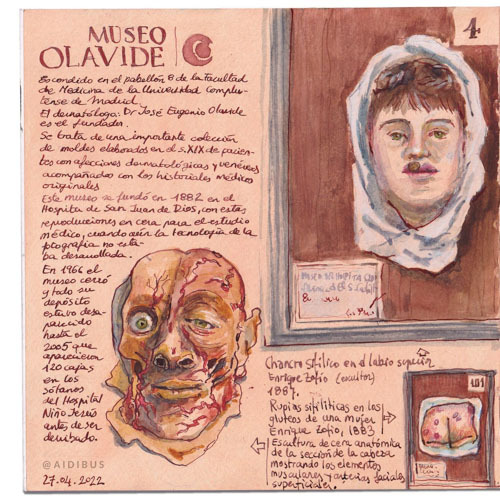 MUSEO
OLAVIDE
Escondido en el pabellón 8 de la Facultad
de Medicina de la Universidad Complu-
tense de Madrid.
El dermatólogo: Dr José Eugenio Olavide
es el fundador.
Se trata de una importante colección
de moldes elaborados en el s.XIX de pacien-
tes con afecciones dermatológicas y venéreas
acompañados con los historiales médicos
originales
Este museo se fundó en 1882 en el
Hospital de San Juan de Dios, con estas
reproducciones en cera para el estudio
médico, cuando aún la tecnología de la
fotografía no esta-
ba desarrollada.
En 1966 el
museo cerró
y todo su
depósito
estuvo desa-
parecido
hasta el
2005 que
aparecieron
120 cajas
en los
sótanos
del Hospital
Niño Jesús
antes de ser
derribado.
@AIDIBUS
27.04.2022
4
Chancro sifilítico en el labio superior
Enrique Zofío (escultor)
1887.
Rupias sifilíticas en los
glúteos de una mujer
Enrique Zofío, 1883
Escultura de cera anatómica
de la sección de la cabeza
mostrando los elementos
musculares y arterias faciales
superficiales.
101